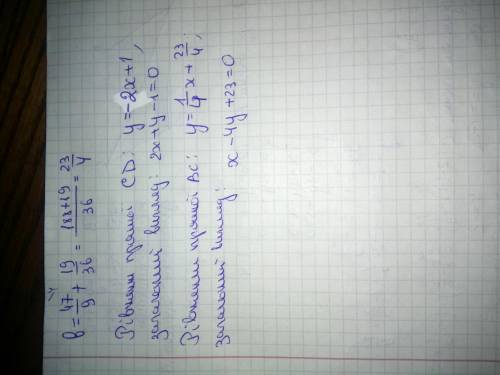 b = 47/9 + 19/36 = (188+19)/36 = 23/4
Рівняння прямої CD: y = -2x+1,
загальний вигляд: 2x+y-1=0
Рівняння прямої BC: y = 1/4 x + 23/4;
загальний вигляд: x-4y+23=0